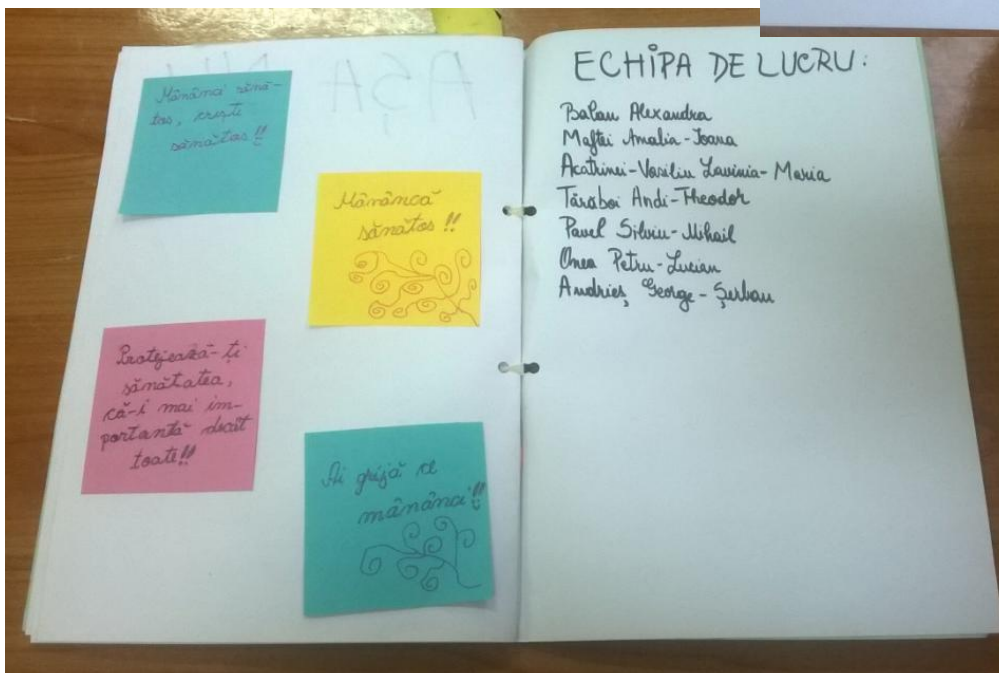 Mănânci sănă-
tos, crești
sănătos!!
Mănâncă
sănătos!!
Protejează-ți
sănătatea,
că-i mai im-
portantă decât
toate!!
Ai grijă ce
mănânci!!
ECHIPA DE LUCRU:
Balan Alexandra
Maftei Amalia-Ioana
Acatrinei-Vasiliu Lavinia-Maria
Tărăboi Andi-Theodor
Pavel Silviu-Mihail
Onea Petru-Lucian
Andrieș George-Șerban